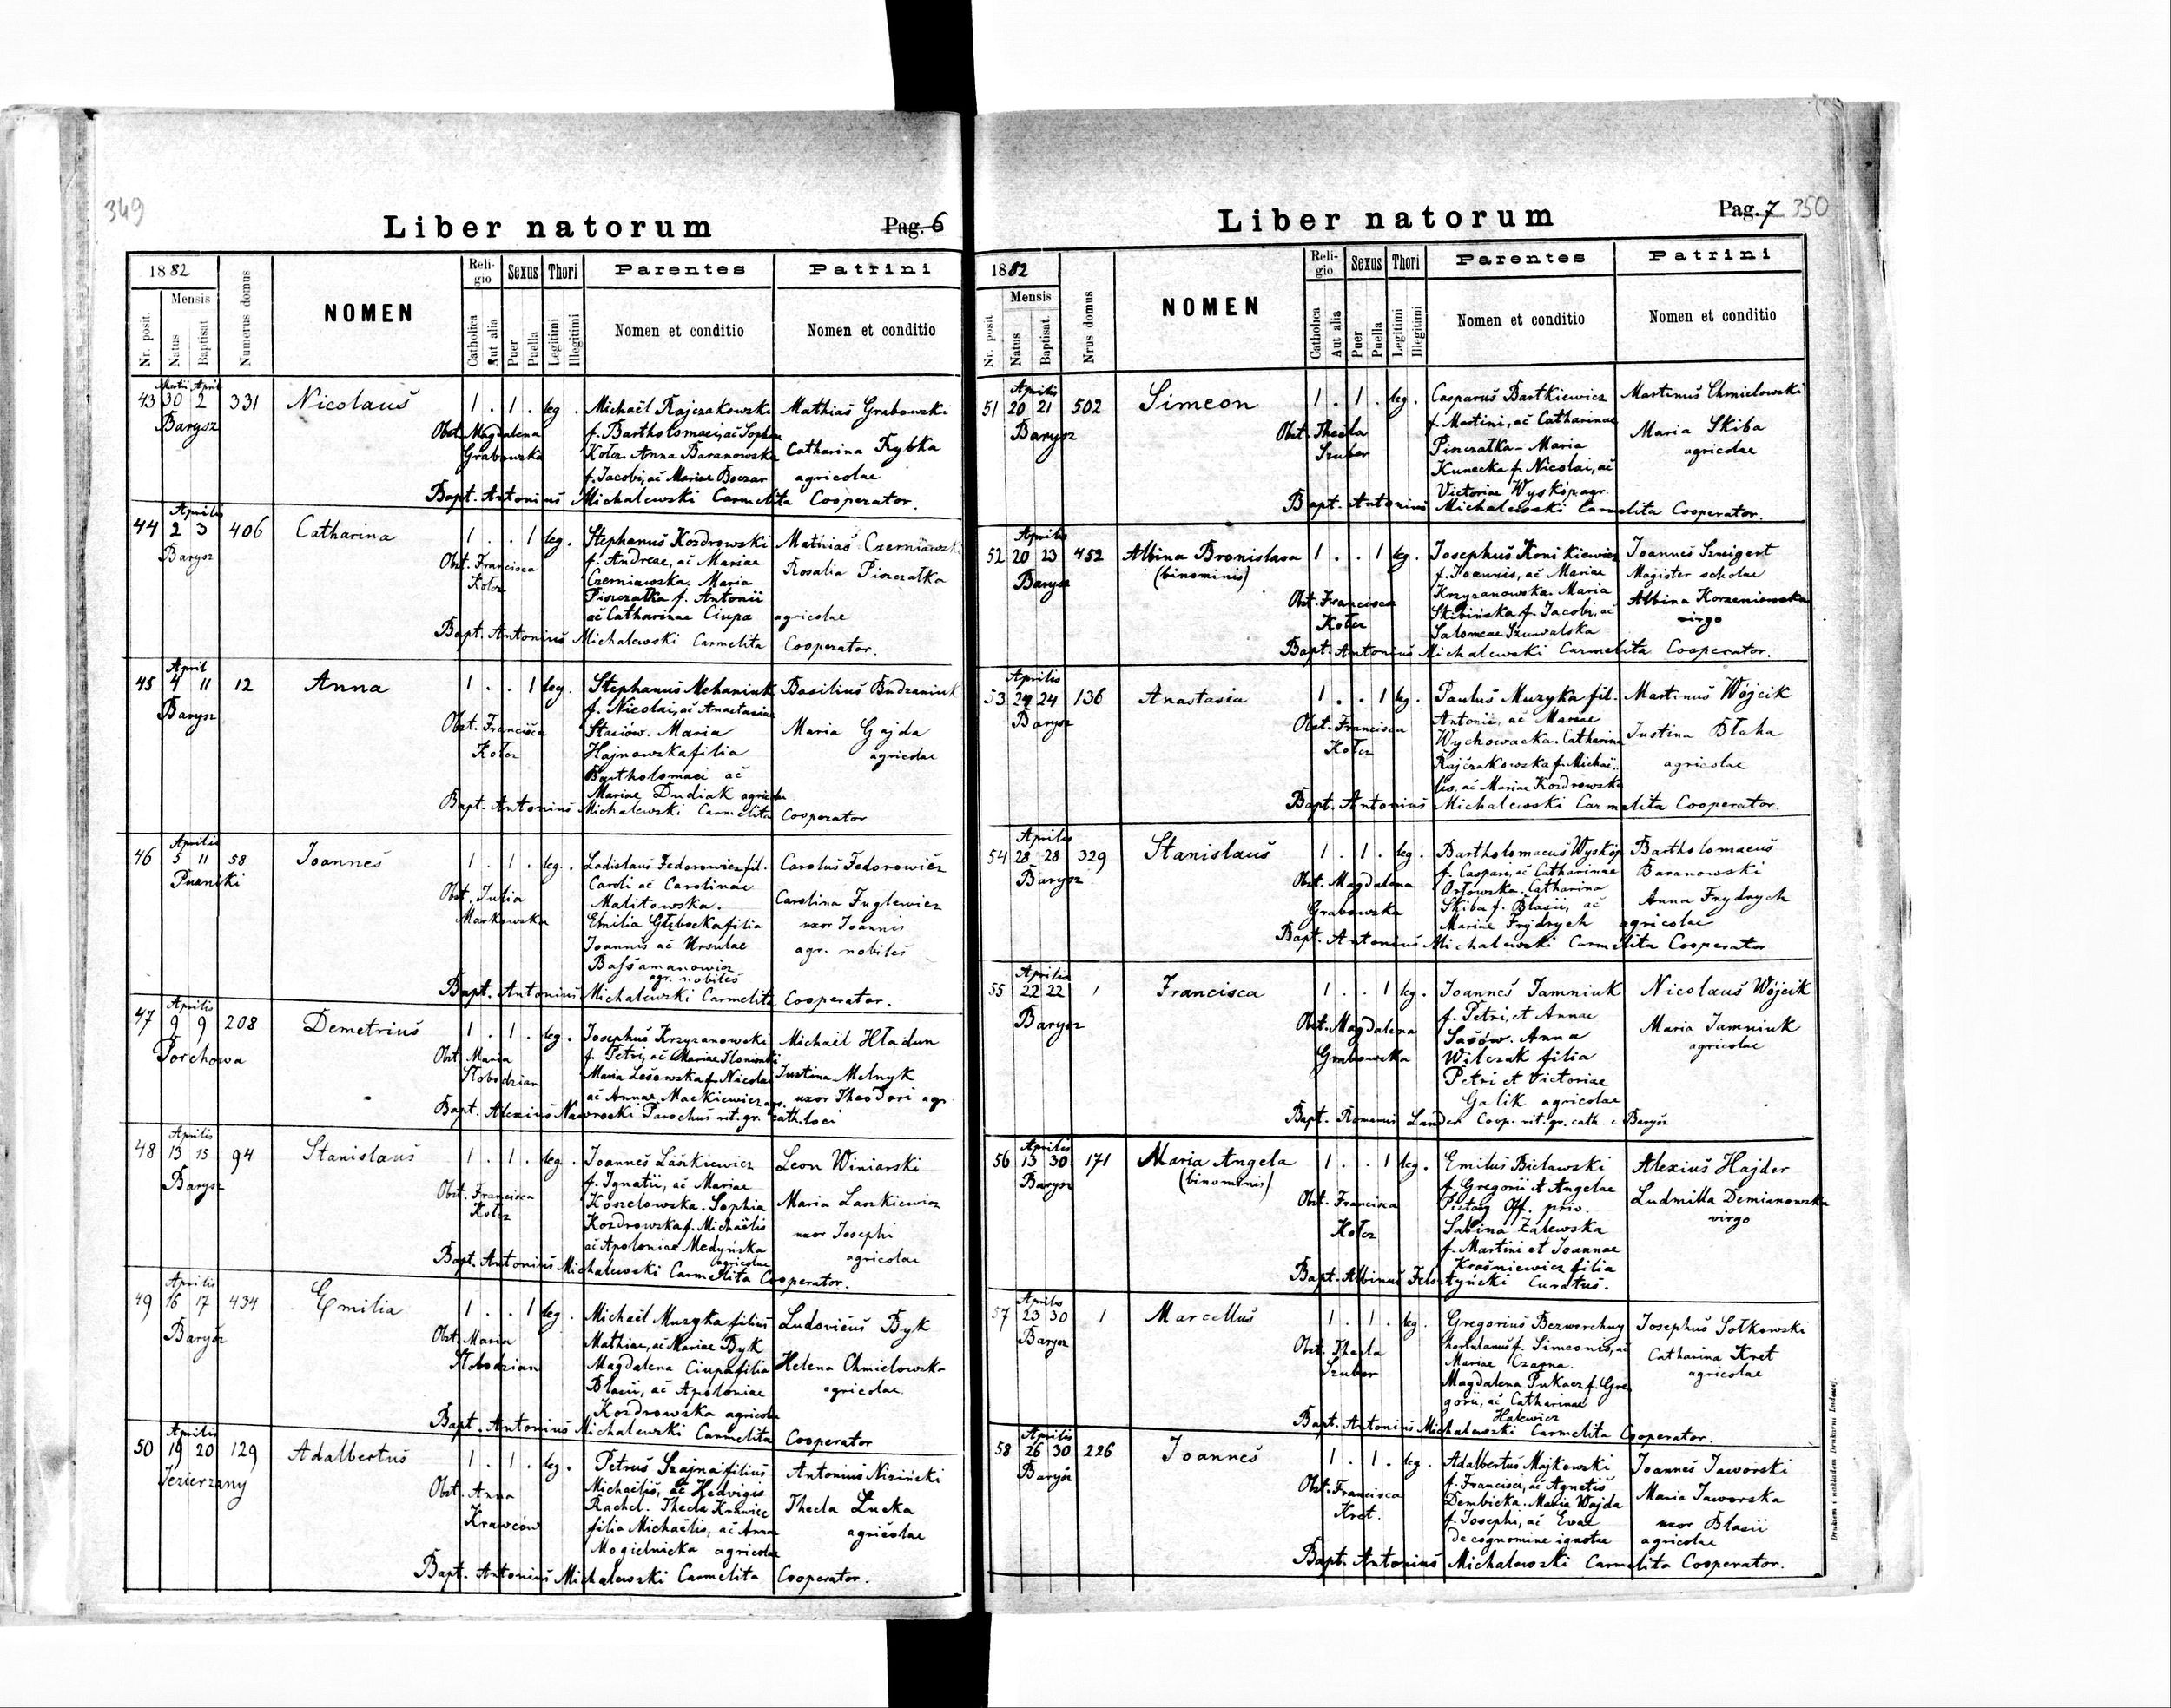 349
Liber natorum
Pag. 6
1882
Nr. posit.
Mensis
Natus
Baptisat.
Numerus domus
NOMEN
Religio
Catholica
Aut alia
Sexus
Puer
Puella
Thori
Legitimi
Illegitimi
Parentes
Nomen et conditio
Patrini
Nomen et conditio
Martii April
43 30 2 331 Nicolaus 1 . 1 . leg . Michaël Rajczakowski Mathias Grabowski
Barysz
Obst. Magdalena f. Bartholomaei, ac Sophiae
Grabowska Kolcz. Anna Baranowska Catharina Rybka
f. Jacobi, ac Mariae Boczar agricolae
Bapt. Antonius Michalewski Carmelita Cooperator.
Aprilis
44 2 3 406 Catharina 1 . . 1 leg. Stephanus Kozdrowski Mathias Czerniawski
Barysz
Obst. Francisca f. Andreae, ac Mariae Rosalia Piszczatka
Kolcz Czerniawska. Maria
Piszczatka f. Antonii
ac Catharinae Ciupa agricolae
Bapt. Antonius Michalewski Carmelita Cooperator.
April
45 4 11 12 Anna 1 . . 1 leg. Stephanus Mehaniuk Basilius Budzaniuk
Barysz f. Nicolai, ac Anastasiae
Obst. Francisca Stasiów. Maria Maria Gajda
Kolcz Hajnowska filia agricolae
Bartholomaei ac
Mariae Dudiak agricolae
Bapt. Antonius Michalewski Carmelita Cooperator
Aprilis
46 5 11 58 Joannes 1 . 1 . leg. . Ladislaus Fedorowicz fil. Carolus Fedorowicz
Puzniki Caroli ac Carolinae
Obst. Julia Malitowska. Carolina Fuglewicz
Markowska Emilia Głębocka filia uxor Joannis
Joannis ac Ursulae agr. nobiles
agr. nobiles
Bapt. Antonius Michalewski Carmelita Cooperator.
Aprilis
47 9 9 208 Demetrius 1 . 1 . leg . Josephus Krzyzanowski Michaël Hładun
Porchowa
Obst. Maria f. Petri, ac Mariae
Słobodzian Maria f. Nicolai Justina Melnyk
ac Annae Mackiewicz agr. uxor Theodori agr.
Bapt. Alexius Nawrocki Parochus rit. gr. cath. loci
Aprilis
48 13 15 94 Stanislaus 1 . 1 . leg . Joannes Laszkiewicz Leon Winiarski
Barysz f. Ignatii, ac Mariae
Obst. Francisca Koszelowska. Sophia Maria Laszkiewicz
Kolcz Kozdrowska f. Michaëlis uxor Josephi
ac Apoloniae Medyńska agricolae
agricolae
Bapt. Antonius Michalewski Carmelita Cooperator.
Aprilis
49 16 17 434 Emilia 1 . . 1 leg . Michaël Muzyka filius Ludovicus Byk
Barysz
Obst. Maria Mathiae, ac Mariae Byk
Słobodzian Magdalena Ciupa filia Helena Chmielowska
Blasii, ac Apoloniae agricolae.
Kozdrowska agricolae
Bapt. Antonius Michalewski Carmelita Cooperator
Aprilis
50 19 20 129 Adalbertus 1 . 1 . leg . Petrus Szajna filius Antonius Niziński
Jezierzany
Obst. Anna Michaëlis, ac Hedvigis
Krawców Rachel. Thecla Krawiec Thecla Lucka
filia Michaëlis, ac Annae agricolae
Mogielnicka agricolae
Bapt. Antonius Michalewski Carmelita Cooperator.
Liber natorum
Pag. 7 350
1882
Nr. posit.
Mensis
Natus
Baptisat.
Nrus domus
NOMEN
Religio
Catholica
Aut alia
Sexus
Puer
Puella
Thori
Legitimi
Illegitimi
Parentes
Nomen et conditio
Patrini
Nomen et conditio
Aprilis
51 20 21 502 Simeon 1 . 1 . leg. Casparus Bartkiewicz Martinus Chmielowski
Barysz f. Martini, ac Catharinae
Obst. Thecla Piszczatka – Maria Maria Skiba
Szuber Kunecka f. Nicolai, ac agricolae
Victoriae Wyskóp agr.
Bapt. Antonius Michalewski Carmelita Cooperator.
Aprilis
52 20 23 452 Albina Bronislava 1 . . 1 leg. Josephus Konikiewicz Joannes Szweigert
Barysz (binominis) f. Joannis, ac Mariae Magister scholae
Obst. Francisca Krzyzanowska. Maria Albina Korzeniowska
Kolcz Skibińska f. Jacobi, ac virgo
Salomeae Szuwalska
Bapt. Antonius Michalewski Carmelita Cooperator.
Aprilis
53 24 24 136 Anastasia 1 . . 1 leg . Paulus Muzyka fil. Martinus Wójcik
Barysz
Obst. Francisca Antonii, ac Mariae
Kolcz Wychowacka. Catharina Justina Błaha
Rajczakowska f. Michaë- agricolae
lis, ac Mariae Kozdrowska
Bapt. Antonius Michalewski Carmelita Cooperator.
Aprilis
54 28 28 329 Stanislaus 1 . 1 . leg . Bartholomaeus Wyskóp Bartholomaeus
Barysz f. Caspari, ac Catharinae Baranowski
Obst. Magdalena Orłowska. Catharina
Grabowska Skiba f. Blasii, ac Anna Frydrych
Mariae Frydrych agricolae
Bapt. Antonius Michalewski Carmelita Cooperator
Aprilis
55 22 22 1 Francisca 1 . . 1 leg . Joannes Jamniuk Nicolaus Wójcik
Barysz f. Petri, et Annae
Obst. Magdalena Sasów. Anna Maria Jamniuk
Grabowska Wilczak filia agricolae
Petri et Victoriae
Galik agricolae
Bapt. Romanus Lander Coop. rit. gr. cath. e Barysz
Aprilis
56 13 30 171 Maria Angela 1 . . 1 leg . Emilus Bielawski Alexius Hajder
Barysz (binominis) f. Gregorii et Angelae
Obst. Francisca Off. priv. Ludmilla Demianowska
Kolcz Sabina Zalewska virgo
f. Martini et Joannae
Kraśniewicz filia
Bapt. Albinus Felsztyński Curatus.
Aprilis
57 23 30 1 Marcellus 1 . 1 . leg . Gregorius Bezwerchny Josephus Sołkowski
Barysz
Obst. Thecla hortulanus f. Simeonis, ac
Szuber Mariae Czarna. Catharina Kret
Magdalena Pukacz f. Gre- agricolae
gorii, ac Catharinae
Halewicz
Bapt. Antonius Michalewski Carmelita Cooperator.
Aprilis
58 26 30 226 Joannes 1 . 1 . leg . Adalbertus Majkowski Joannes Jaworski
Barysz
Obst. Francisca f. Francisci, ac Agnetis
Kret. Dembicka. Maria Wajda Maria Jaworska
f. Josephi, ac Evae uxor Blasii
de cognomine ignotae agricolae
Bapt. Antonius Michalewski Carmelita Cooperator.